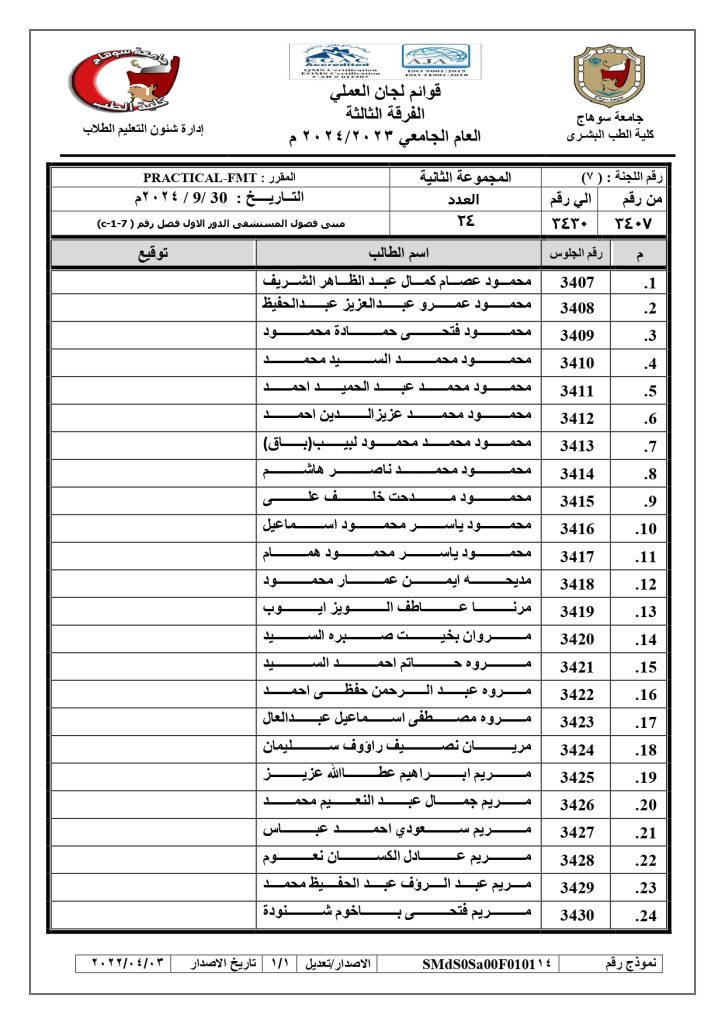 جامعة سوهاج
كلية الطب البشرى
EGAC
Accredited
QMS Certification
EOMS Certification
CAB # 012207
AJA
ISO 9001/2015
ISO 21001-2018
قوائم لجان العملي
الفرقة الثالثة
العام الجامعي ٢٠٢٤/٢٠٢٣ م
جامعة سوهاج
كلية الطب
إدارة شئون التعليم الطلاب
رقم اللجنة : ( ٧ ) المجموعة الثانية المقرر : PRACTICAL-FMT
من رقم الي رقم العدد التاريخ : 30 /9/ ٢٠٢٤م
٣٤٠٧ ٣٤٣٠ ٢٤ مبنى فصول المستشفى الدور الاول فصل رقم ( c-1-7)
م رقم الجلوس اسم الطالب توقيع
.1 3407 محمود عصام كمال عبد الظاهر الشريف
.2 3408 محمود عمرو عبدالعزيز عبدالحفيظ
.3 3409 محمود فتحى حمادة محمود
.4 3410 محمود محمد السيد محمد
.5 3411 محمود محمد عبد الحميد احمد
.6 3412 محمود محمد عزيزالدين احمد
.7 3413 محمود محمد محمود لبيب(باق)
.8 3414 محمود محمد ناصر هاشم
.9 3415 محمود مدحت خلف على
.10 3416 محمود ياسر محمود اسماعيل
.11 3417 محمود ياسر محمود همام
.12 3418 مديحه ايمن عمار محمود
.13 3419 مرنا عاطف الويز ايوب
.14 3420 مروان بخيت صبره السيد
.15 3421 مروه حاتم احمد السيد
.16 3422 مروه عبد الرحمن حفظى احمد
.17 3423 مروه مصطفى اسماعيل عبدالعال
.18 3424 مريان نصيف راؤوف سليمان
.19 3425 مريم ابراهيم عطاالله عزيز
.20 3426 مريم جمال عبد النعيم محمد
.21 3427 مريم سعودي احمد عباس
.22 3428 مريم عادل الكسان نعوم
.23 3429 مريم عبد الرؤف عبد الحفيظ محمد
.24 3430 مريم فتحى باخوم شنودة
نموذج رقم SMdS0Sa00F0101١٤ الاصدار/تعديل ١/١ تاريخ الاصدار ٢٠٢٢/٠٤/٠٣